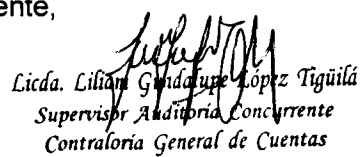 ente,
Licda. Lilian Guadalupe López Tigüilá
Supervisor Auditoría Concurrente
Contraloría General de Cuentas